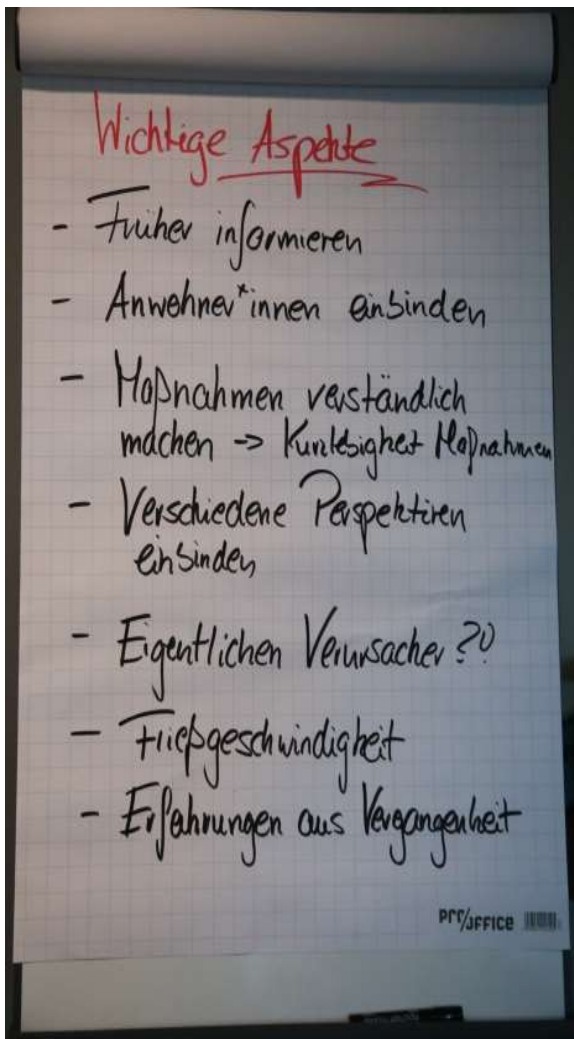 Wichtige Aspekte
- Früher informieren
- Anwohner*innen einbinden
- Maßnahmen verständlich
machen -> Kurzlebigkeit Maßnahmen
- Verschiedene Perspektiven
einbinden
- Eigentlichen Verursacher??
- Fließgeschwindigkeit
- Erfahrungen aus Vergangenheit
pro/office